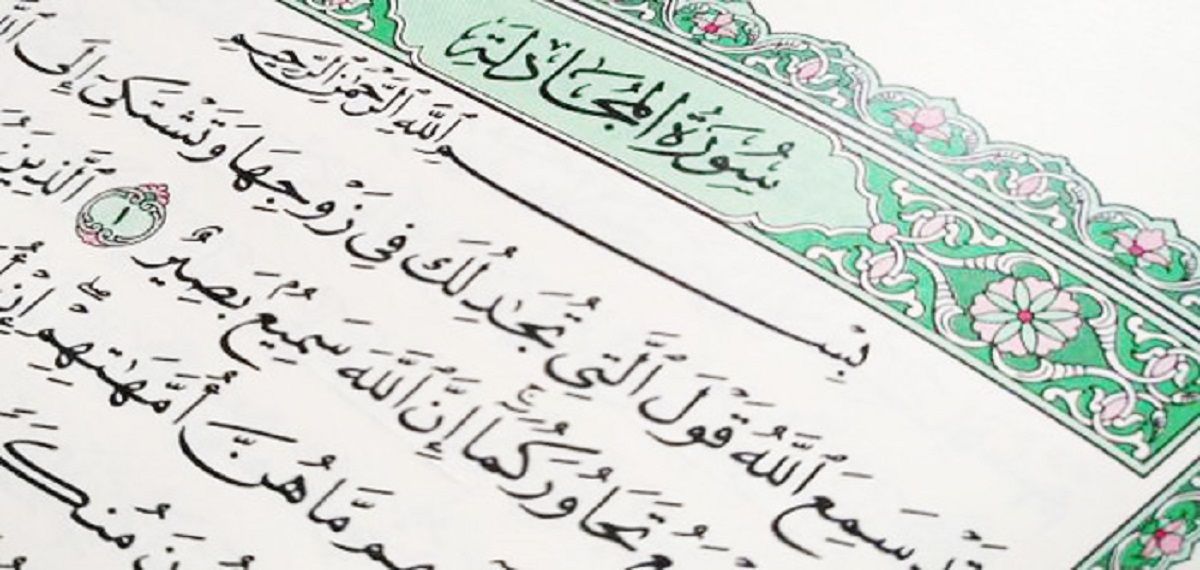 سُورَةُ المُجَادلَة
بِسْمِ ٱللَّهِ ٱلرَّحْمَٰنِ ٱلرَّحِيمِ
سَمِعَ ٱللَّهُ قَوْلَ ٱلَّتِي تُجَٰدِلُكَ فِي زَوْجِهَا وَتَشْتَكِيٓ إِلَى
تَحَاوُرَكُمَآ ۚ إِنَّ ٱللَّهَ سَمِيعٌۢ بَصِيرٌ ١ ٱلَّذِينَ
مَّا هُنَّ أُمَّهَٰتِهِمْ ۖ